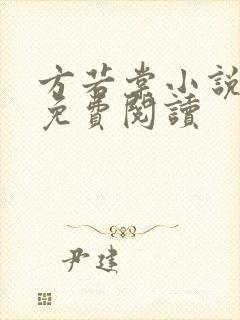 方若棠小說
免費閱讀
尹建